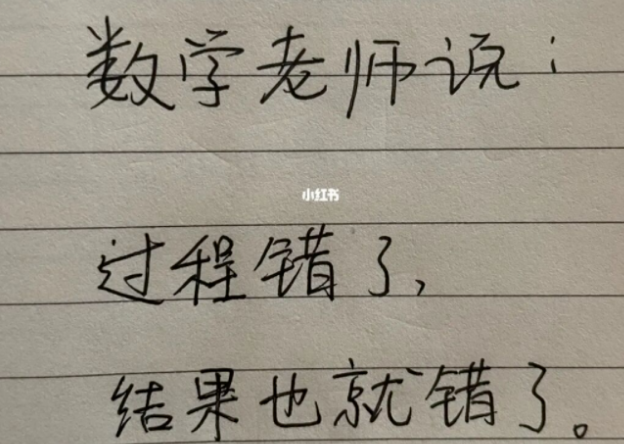 数学老师说:
小红书
过程错了,
结果也就错了。